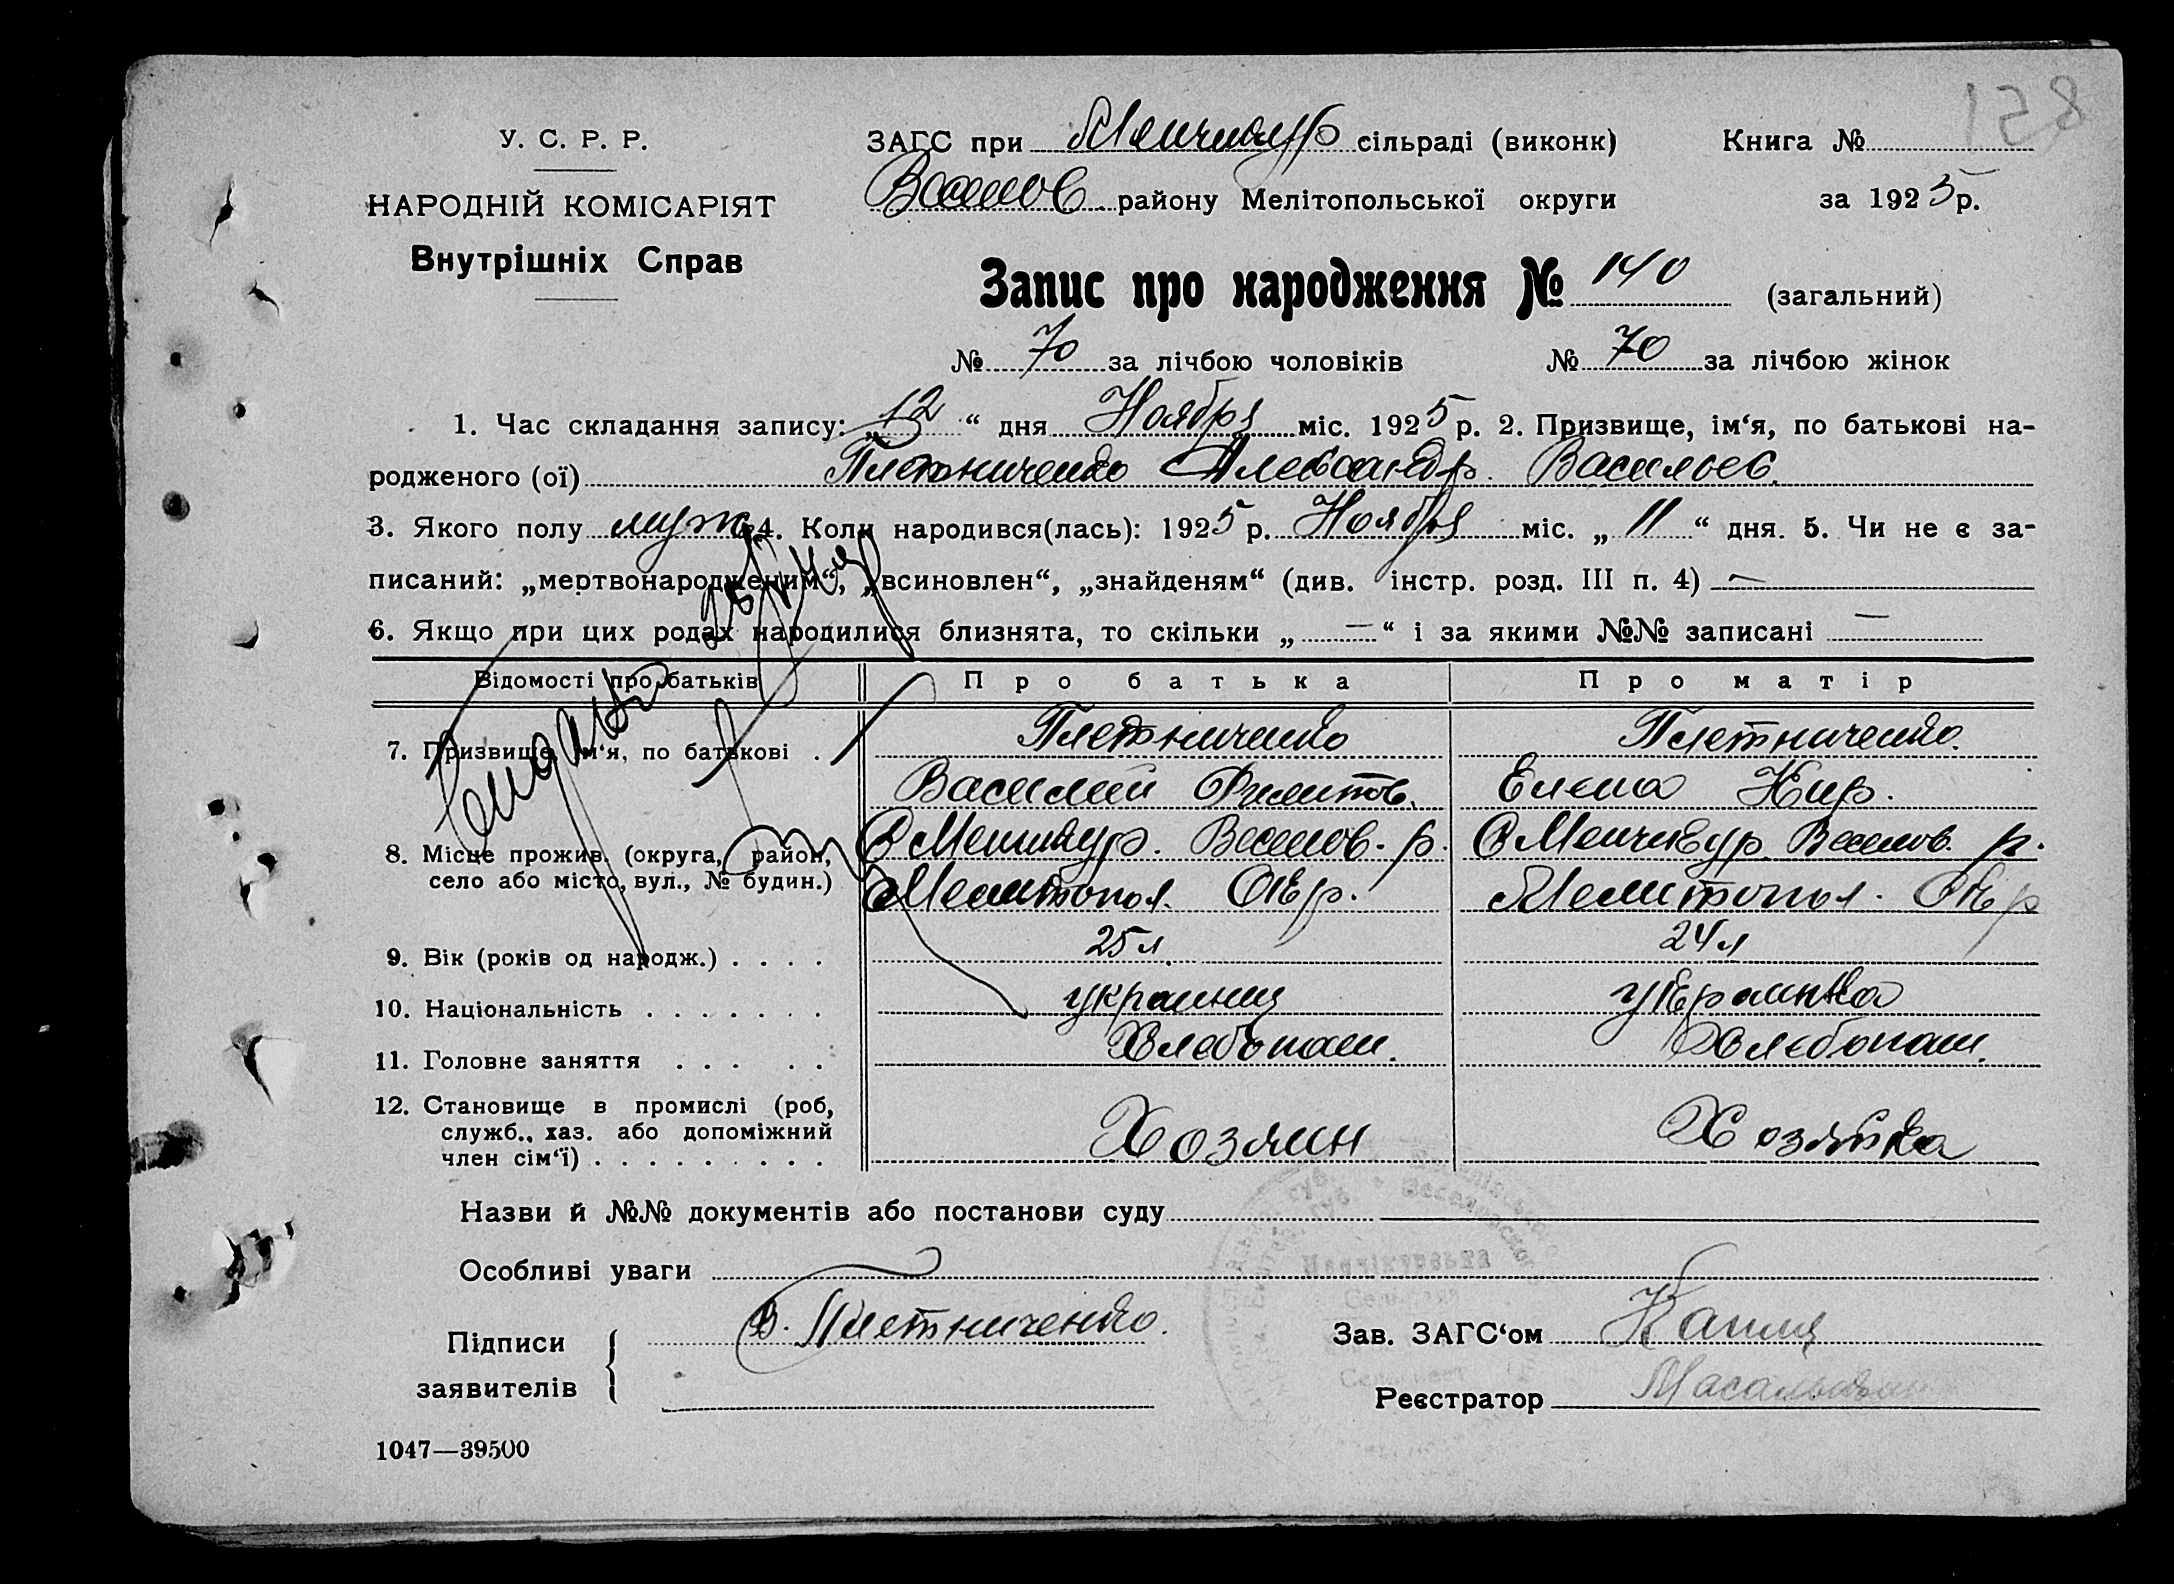 158
У. С. Р. Р.
НАРОДНІЙ КОМІСАРІЯТ
Внутрішніх Справ
ЗАГС при Менчикур сільраді (виконк)
Веселов району Мелітопольської округи
Книга №
за 1925 р.
Запис про народження № 140 (загальний)
№ 70 за лічбою чоловіків № 70 за лічбою жінок
1. Час складання запису: „12“ дня Ноября міс. 1925 р. 2. Призвище, ім‘я, по батькові на-
родженого (ої) Плетниченко Александр Васильев.
3. Якого полу муж. 4. Коли народився(лась): 1925 р. Ноября міс. „11“ дня. 5. Чи не є за-
писаний: „мертвонародженим“, „всиновлен“, „знайденям“ (див. інстр. розд. III п. 4) —
6. Якщо при цих родах народилися близнята, то скільки „—“ і за якими №№ записані —
Відомості про батьків Про батька Про матір
7. Призвище, ім‘я, по батькові . Плетниченко Плетниченко.
Василий Филитов. Елена Кир.
8. Місце прожив. (округа, район, С Менчикур. Веселов. р. С Менчикур. Веселов. р.
село або місто, вул., № будин.) Мелитопол. Окр. Мелитопол. Окр
9. Вік (років од народж.) . . . . 25 л. 24 л
10. Національність . . . . . . . украинец украинка
11. Головне заняття . . . . . Хлебопаш. Хлебопаш.
12. Становище в промислі (роб,
служб., хаз. або допоміжний
член сім‘ї) . . . . . . . . . Хозяин Хозяйка
Назви й №№ документів або постанови суду
Особливі уваги
Підписи
заявителів
В. Плетниченко.
Зав. ЗАГС‘ом
Реєстратор
1047—39500